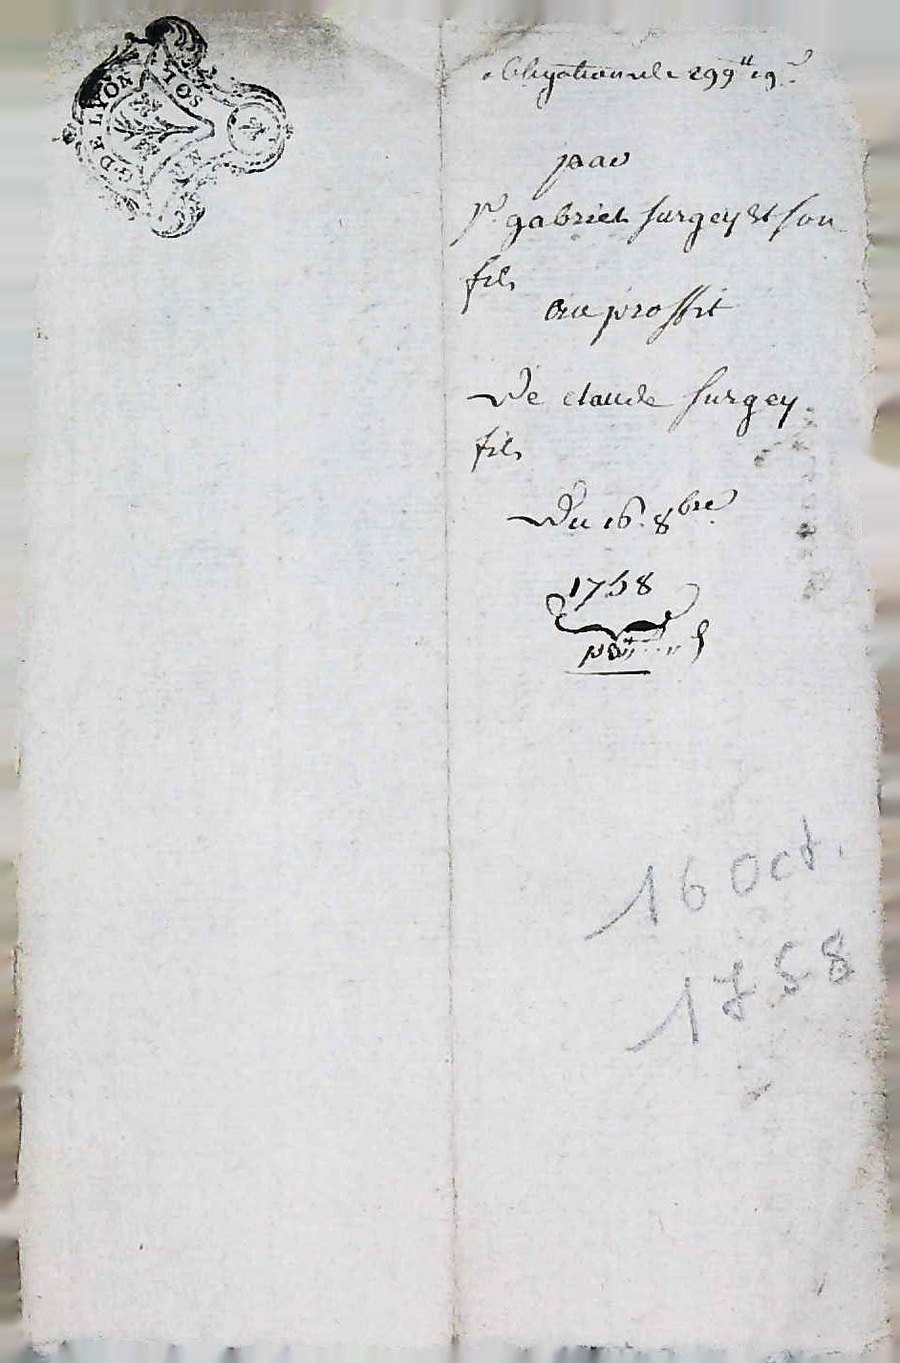 G. DE LYON
SOLS
obligation de 299ᵗᵗ 19ˢ
par
Sʳ gabriel furgey et son
fils
au proffit
De claude furgey
fils
Du 16. 8bre
1758
16 Oct.
1758